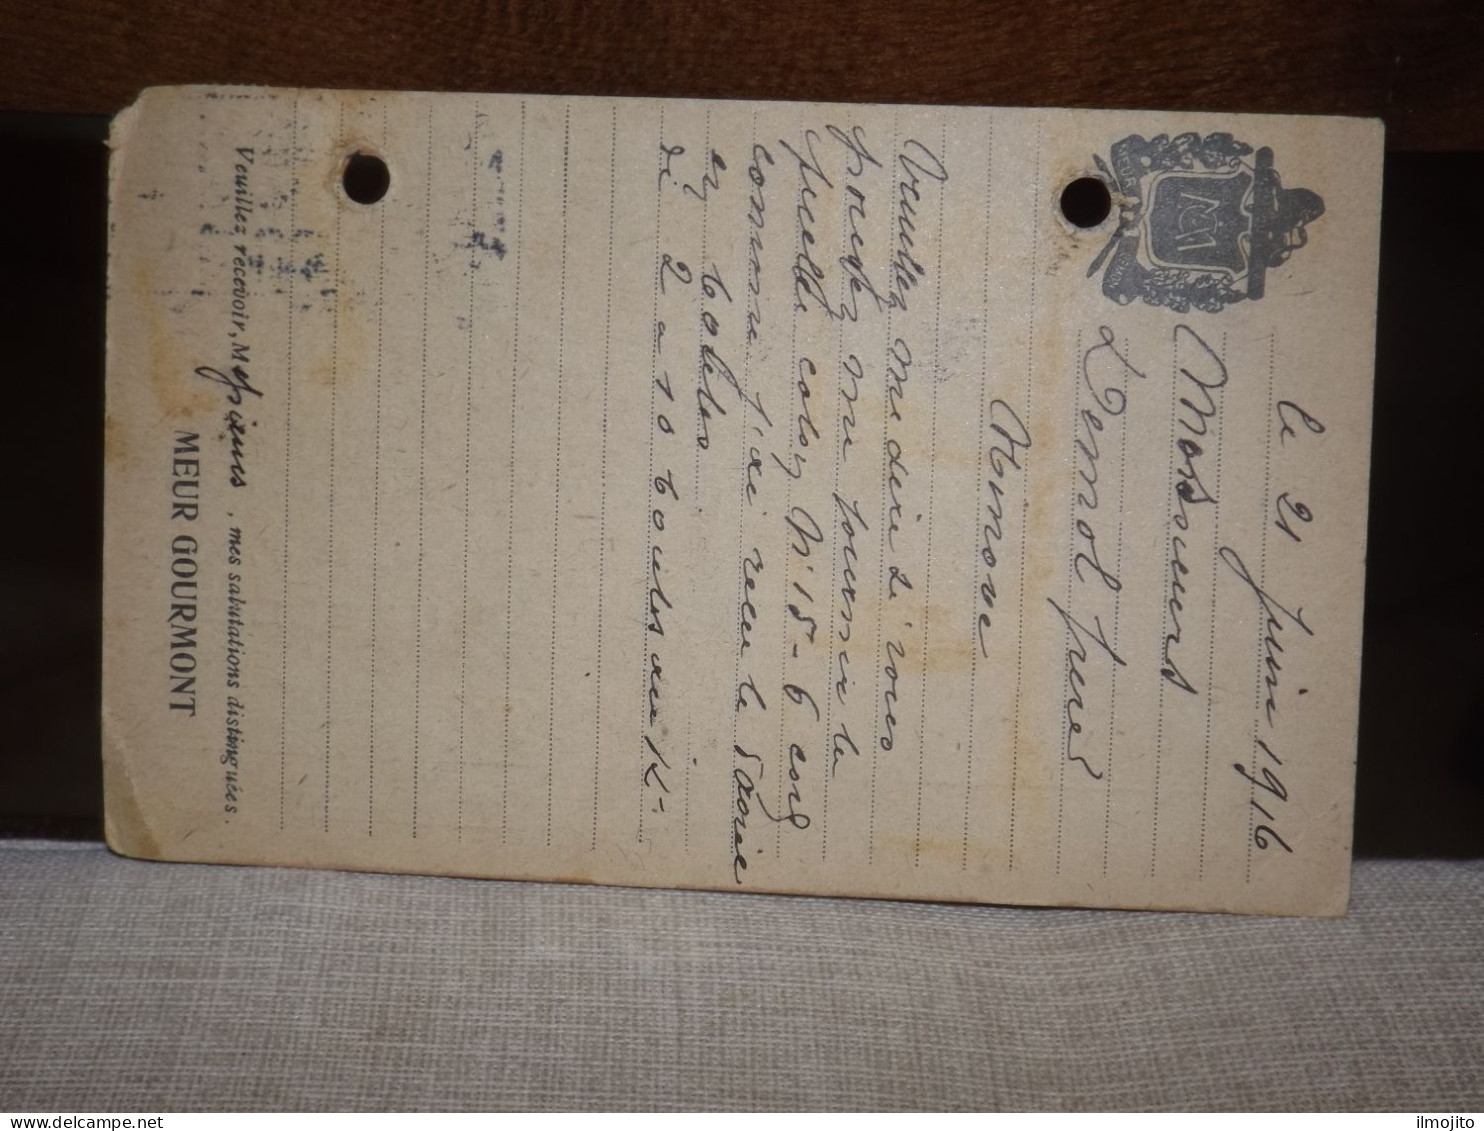 le 21 Juin 1916
Messieurs
Demol frères
Ninove
Veuillez me dire si vous
pouvez me fournir la
ficelle N° 15 - 6
comme j'ai recu le
en
di 2 a 10 au K.
Veuillez recevoir, Messieurs, mes salutations distinguées.
MEUR GOURMONT
delcampe.net
ilmojito